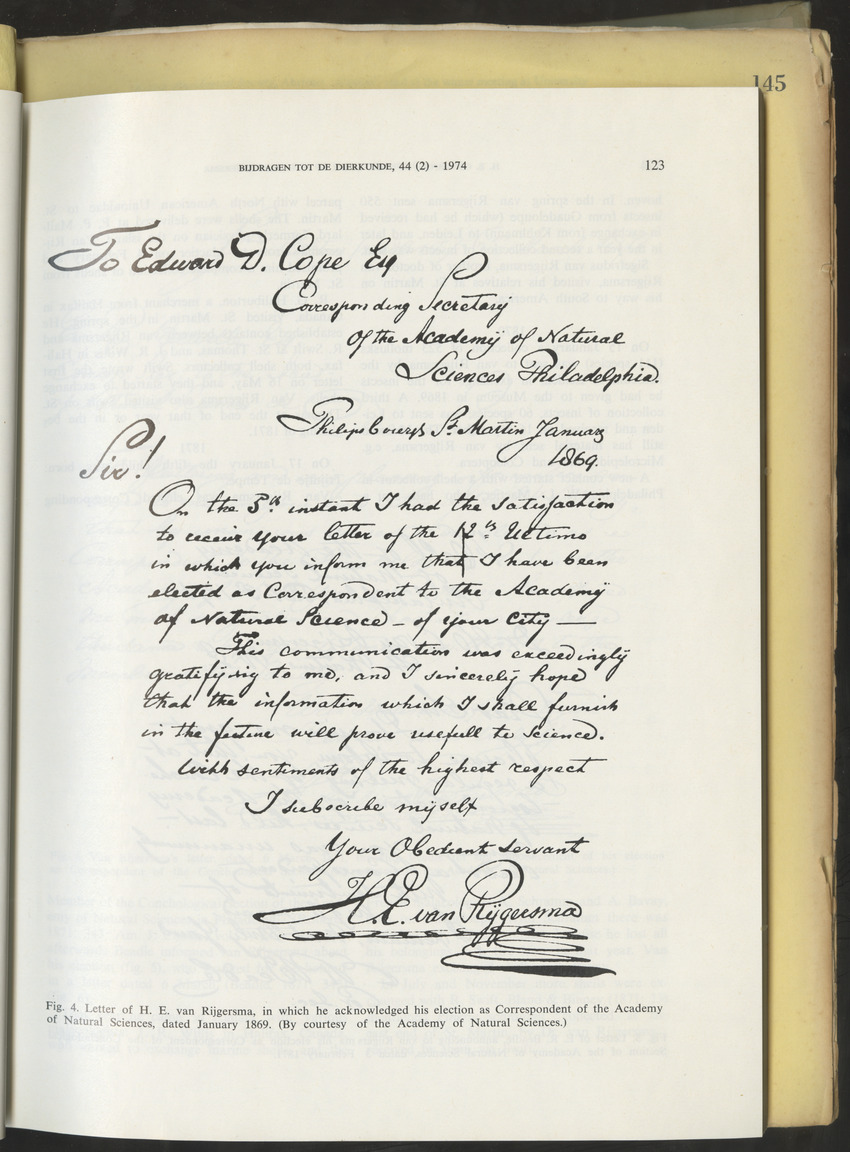 145
BIJDRAGEN TOT DE DIERKUNDE, 44 (2) - 1974
123
To Edward D. Cope Esq
Corresponding Secretary
of the Academy of Natural
Sciences Philadelphia.
Philipsbourgh St. Martin January
1869.
Sir!
On the 3th instant I had the satisfaction
to receive your letter of the 12th Ultimo
in which you inform me that I have been
elected as Correspondent to the Academy
of Natural Science - of your City —
This communication was exceedingly
gratifying to me, and I sincerely hope
that the information which I shall furnish
in the future will prove usefull to science.
With sentiments of the highest respect
I subscribe myself
Your Obedient servant
H. E. van Rijgersma
Fig. 4. Letter of H. E. van Rijgersma, in which he acknowledged his election as Correspondent of the Academy
of Natural Sciences, dated January 1869. (By courtesy of the Academy of Natural Sciences.)